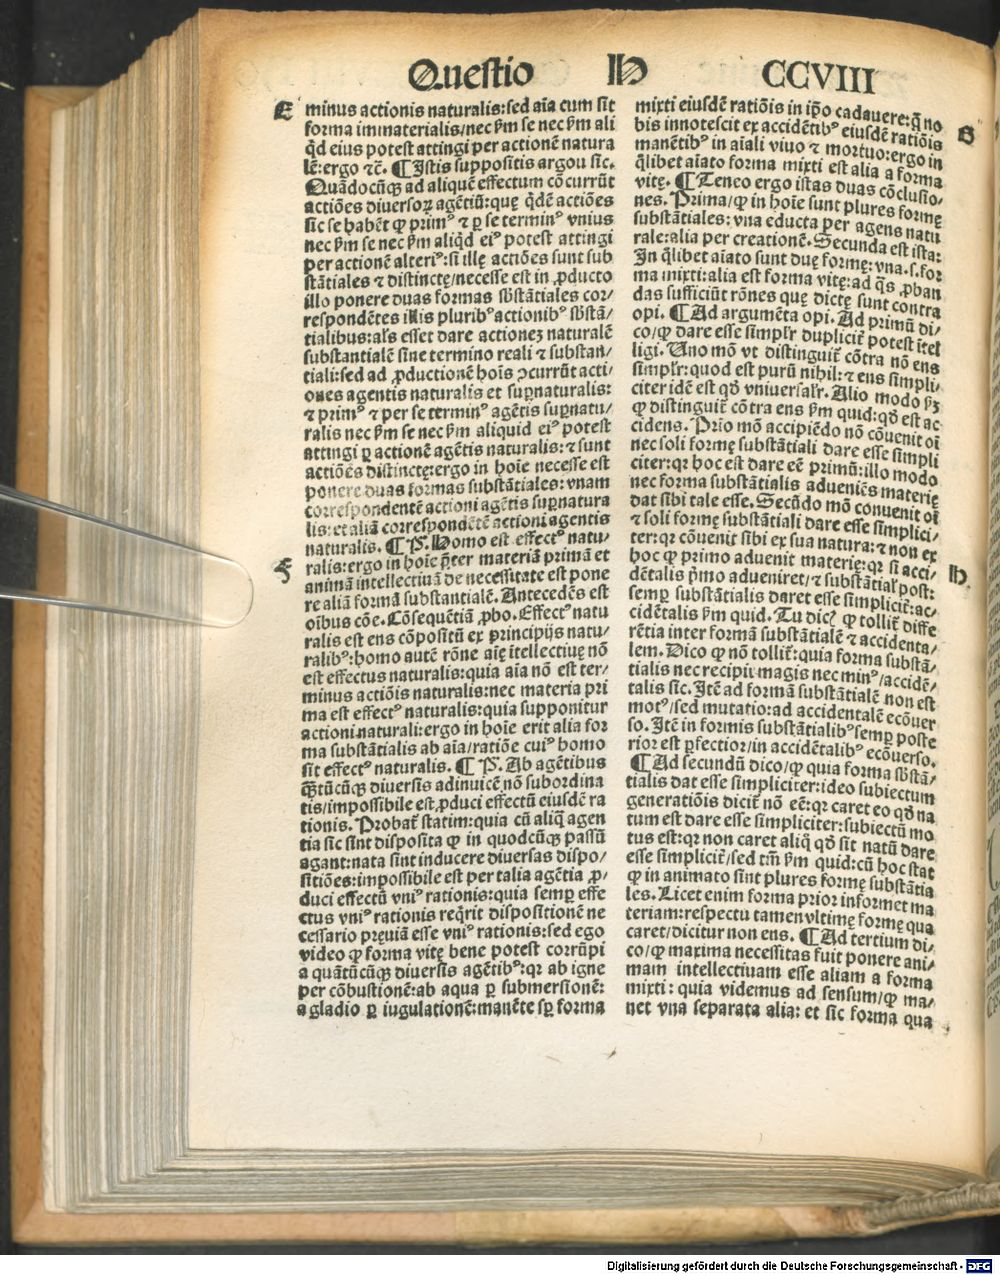 Questio II CCVIII
E
minus actionis naturalis:sed aīa cum sit
forma immaterialis/nec ꝓm se nec ꝓm ali
q̄d eius potest attingi per actionē natura
lē:ergo ⁊c̄. ¶Istis suppositis arguo sic.
Quādocūqꝫ ad aliquē effectum cōcurrūt
actiōes diuersoꝝ agētiū:que q̄dē actiōes
sic se habēt ꝙ primꝰ ⁊ ꝑ se terminꝰ vnius
nec ꝓm se nec ꝓm aliq̄d eiꝰ potest attingi
per actionē alteriꝰ:si illę actiōes sunt sub
stātiales ⁊ distinctę/necesse est in ꝓducto
illo ponere duas formas sb̄stātiales cor/
respondētes illis pluribꝰ actionibꝰ sb̄stā/
tialibus:al̄s esset dare actioneꝫ naturalē
substantialē sine termino reali ⁊ substan/
tiali:sed ad ꝓductionē hoīs ꝯcurrūt acti/
ones agentis naturalis et suꝑnaturalis:
⁊ primꝰ ⁊ per se terminꝰ agētis suꝑnatu/
ralis nec ꝓm se nec ꝓm aliquid eiꝰ potest
attingi ꝑ actionē agētis naturalis:⁊ sunt
actiōes distinctę:ergo in hoīe necesse est
ponere duas formas substātiales:vnam
correspondentē actioni agētis suꝑnatura
lis:et aliā correspondētē actioni agentis
naturalis. ¶P̄. Homo est effectꝰ natu/
F
ralis:ergo in hoīe p̄ter materiā primā et
animā intellectiuā de necessitate est pone
re aliā formā substantialē. Antecedēs est
oībus cōe. Cōsequētiā ꝓbo. Effectꝰ natu
ralis est ens cōpositū ex principijs natu/
ralibꝰ:homo autē rōne aię ītellectiuę nō
est effectus naturalis:quia aīa nō est ter/
minus actiōis naturalis:nec materia pri
ma est effectꝰ naturalis:quia supponitur
actioni naturali:ergo in hoīe erit alia for
ma substātialis ab aīa/ratiōe cuiꝰ homo
sit effectꝰ naturalis. ¶P̄. Ab agētibus
q̄ꝫtūcūqꝫ diuersis adinuicē nō subordina
tis/impossibile est ꝓduci effectū eiusdē ra
tionis. Probat̄ statim:quia cū aliq̄ agen
tia sic sint disposita ꝙ in quodcūqꝫ passū
agant:nata sint inducere diuersas dispo/
sitiōes:impossibile est per talia agētia ꝓ/
duci effectū vniꝰ rationis:quia semꝑ effe
ctus vniꝰ rationis req̄rit dispositionē ne
cessario pręuiā esse vniꝰ rationis:sed ego
video ꝙ forma vitę bene potest corrūpi
a quātūcūqꝫ diuersis agētibꝰ:qꝛ ab igne
per cōbustionē:ab aqua ꝑ submersionē:
a gladio ꝑ iugulationē:manēte sꝑ forma
mixti eiusdē ratiōis in ip̄o cadauere:q̄ no
G
bis innotescit ex accidētibꝰ eiusdē ratiōis
manētibꝰ in aīali viuo ⁊ mortuo:ergo in
q̄libet aīato forma mixti est alia a forma
vitę. ¶Teneo ergo istas duas cōclusio/
nes. Prima/ꝙ in hoīe sunt plures formę
substātiales: vna educta per agens natu
rale:alia per creationē. Secunda est ista:
In q̄libet aīato sunt duę formę: vna.s.for
ma mixti:alia est forma vitę:ad q̄s ꝓban
das sufficiūt rōnes quę dictę sunt contra
opi. ¶Ad argumēta opi. Ad primū di/
co/ꝙ dare esse simpl̄r duplicit̄ potest ītel
ligi. Uno mō vt distinguit̄ cōtra nō ens
simpl̄r:quod est purū nihil:⁊ ens simpli/
citer idē est qd̄ vniuersal̄r. Alio modo ꝓꝫ
ꝙ distinguit̄ cōtra ens ꝓm quid:qd̄ est ac
cidens. Prīo mō accipiēdo nō cōuenit oī
nec soli formę substātiali dare esse simpli
citer:qꝛ hoc est dare eē primū:illo modo
nec forma substātialis adueniēs materię
dat sibi tale esse. Secūdo mō conuenit oī
⁊ soli formę substātiali dare esse simplici/
ter:qꝛ cōuenit sibi ex sua natura:⁊ non ex
hoc ꝙ primo aduenit materię:qꝛ si acci/
H
dētalis p̄mo adueniret/⁊ substātial̄r post:
semꝑ substātialis daret esse simplicit̄:ac/
cidētalis ꝓm quid. Tu dicꝭ ꝙ tollit̄ diffe
rētia inter formā substātialē ⁊ accidenta/
lem. Dico ꝙ nō tollit̄:quia forma substā/
tialis nec recipit magis nec minꝰ/accidē/
talis sic. Itē ad formā substātialē non est
motꝰ/sed mutatio:ad accidentalē ecōuer
so. Itē in formis substātialibꝰ semꝑ poste
rior est ꝑfectior/in accidētalibꝰ ecōuerso.
¶Ad secundū dico/ꝙ quia forma sb̄stā/
tialis dat esse simpliciter:ideo subiectum
generatiōis dicit̄ nō eē:qꝛ caret eo qd̄ na
tum est dare esse simpliciter:subiectū mo
tus est:qꝛ non caret aliq̄ qd̄ sit natū dare
esse simplicit̄/sed tm̄ ꝓm quid:cū hoc stat
ꝙ in animato sint plures formę substātia
les. Licet enim forma prior informet ma
teriam:respectu tamen vltimę formę qua
caret/dicitur non ens. ¶Ad tertium di/
co/ꝙ maxima necessitas fuit ponere ani/
mam intellectiuam esse aliam a forma
mixti: quia videmus ad sensum/ꝙ ma/
net vna separata alia: et sic forma qua
Digitalisierung gefördert durch die Deutsche Forschungsgemeinschaft - DFG